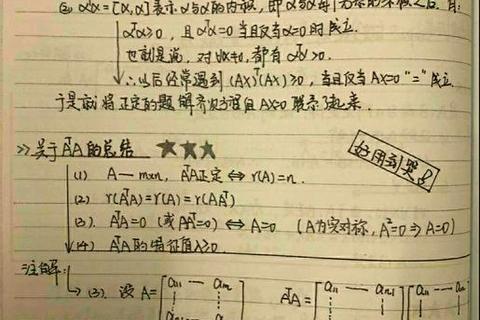 ② αᵀα=[α,α]表示α与α的内积,即α与α每个元素的乘积之后,有:
αᵀα≥0,且αᵀα=0当且仅当α=0时成立.
也就是说,对∀α≠0,都有αᵀα>0.
∴以后经常遇到(Ax)ᵀ(Ax)≥0,当且仅当Ax=0"="成立.
于是就将正定的题 解齐次方程组Ax=0 联系了起来.
>>关于AᵀA的总结 ★★★
好用到哭!
(1) A—m×n, AᵀA正定⇔r(A)=n.
(2) r(AᵀA)=r(A)=r(AAᵀ)
(3). AᵀA=0 (或AAᵀ=0)⇔A=0 (A为实对称,A²=0⇒A=0)
(4) AᵀA的特征值λ≥0.
注解:
(3). 设A=[a₁₁ — a₁ₙ AᵀA=[a₁₁ — aₘ₁][a₁₁ — a₁ₙ